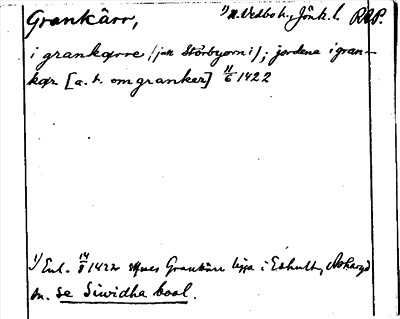 Grankärr, 1) N. Vedbo h., Jönk. l. RAP.
i grankærre (jac Størbyorn i); jordena i gran-
kær [a. t. om granker] 11/6 1422
1) Enl. 14/8 1422 synes Grankärr ligga i Eshult, Askeryd
sn. se Siwidha boal.